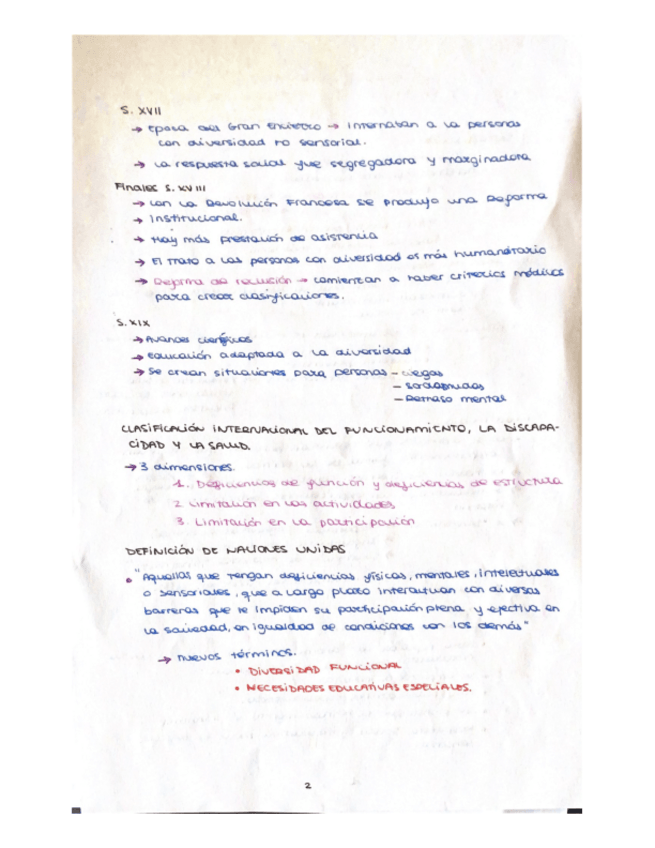 S. XVII
→ Epoca del Gran Encierro → internaban a la persona
con diversidad no sensorial.
→ La respuesta social fue segregadora y marginadora
Finales S. XVIII
→ Con la Revolución Francesa se produjo una Reforma
→ Institucional.
→ Hay más prestación de asistencia
→ El trato a las personas con diversidad es más humanitario
→ Reforma de reclusión → comienzan a haber criterios médicos
para crear clasificaciones.
S. XIX
→ Avances científicos
→ Educación adaptada a la diversidad
→ Se crean situaciones para personas - ciegas
- Sordomudos
- Retraso mental
CLASIFICACIÓN INTERNACIONAL DEL FUNCIONAMIENTO, LA DISCAPA-
CIDAD Y LA SALUD.
→ 3 dimensiones.
1. Deficiencias de función y deficiencias de estructura
2. Limitación en las actividades
3. Limitación en la participación
DEFINICIÓN DE NACIONES UNIDAS
• "Aquellas que tengan deficiencias físicas, mentales, intelectuales
o sensoriales, que a largo plazo interactuan con diversas
barreras que le impiden su participación plena y efectiva en
la sociedad, en igualdad de condiciones con los demás"
→ nuevos términos.
• DIVERSIDAD FUNCIONAL
• NECESIDADES EDUCATIVAS ESPECIALES.
2